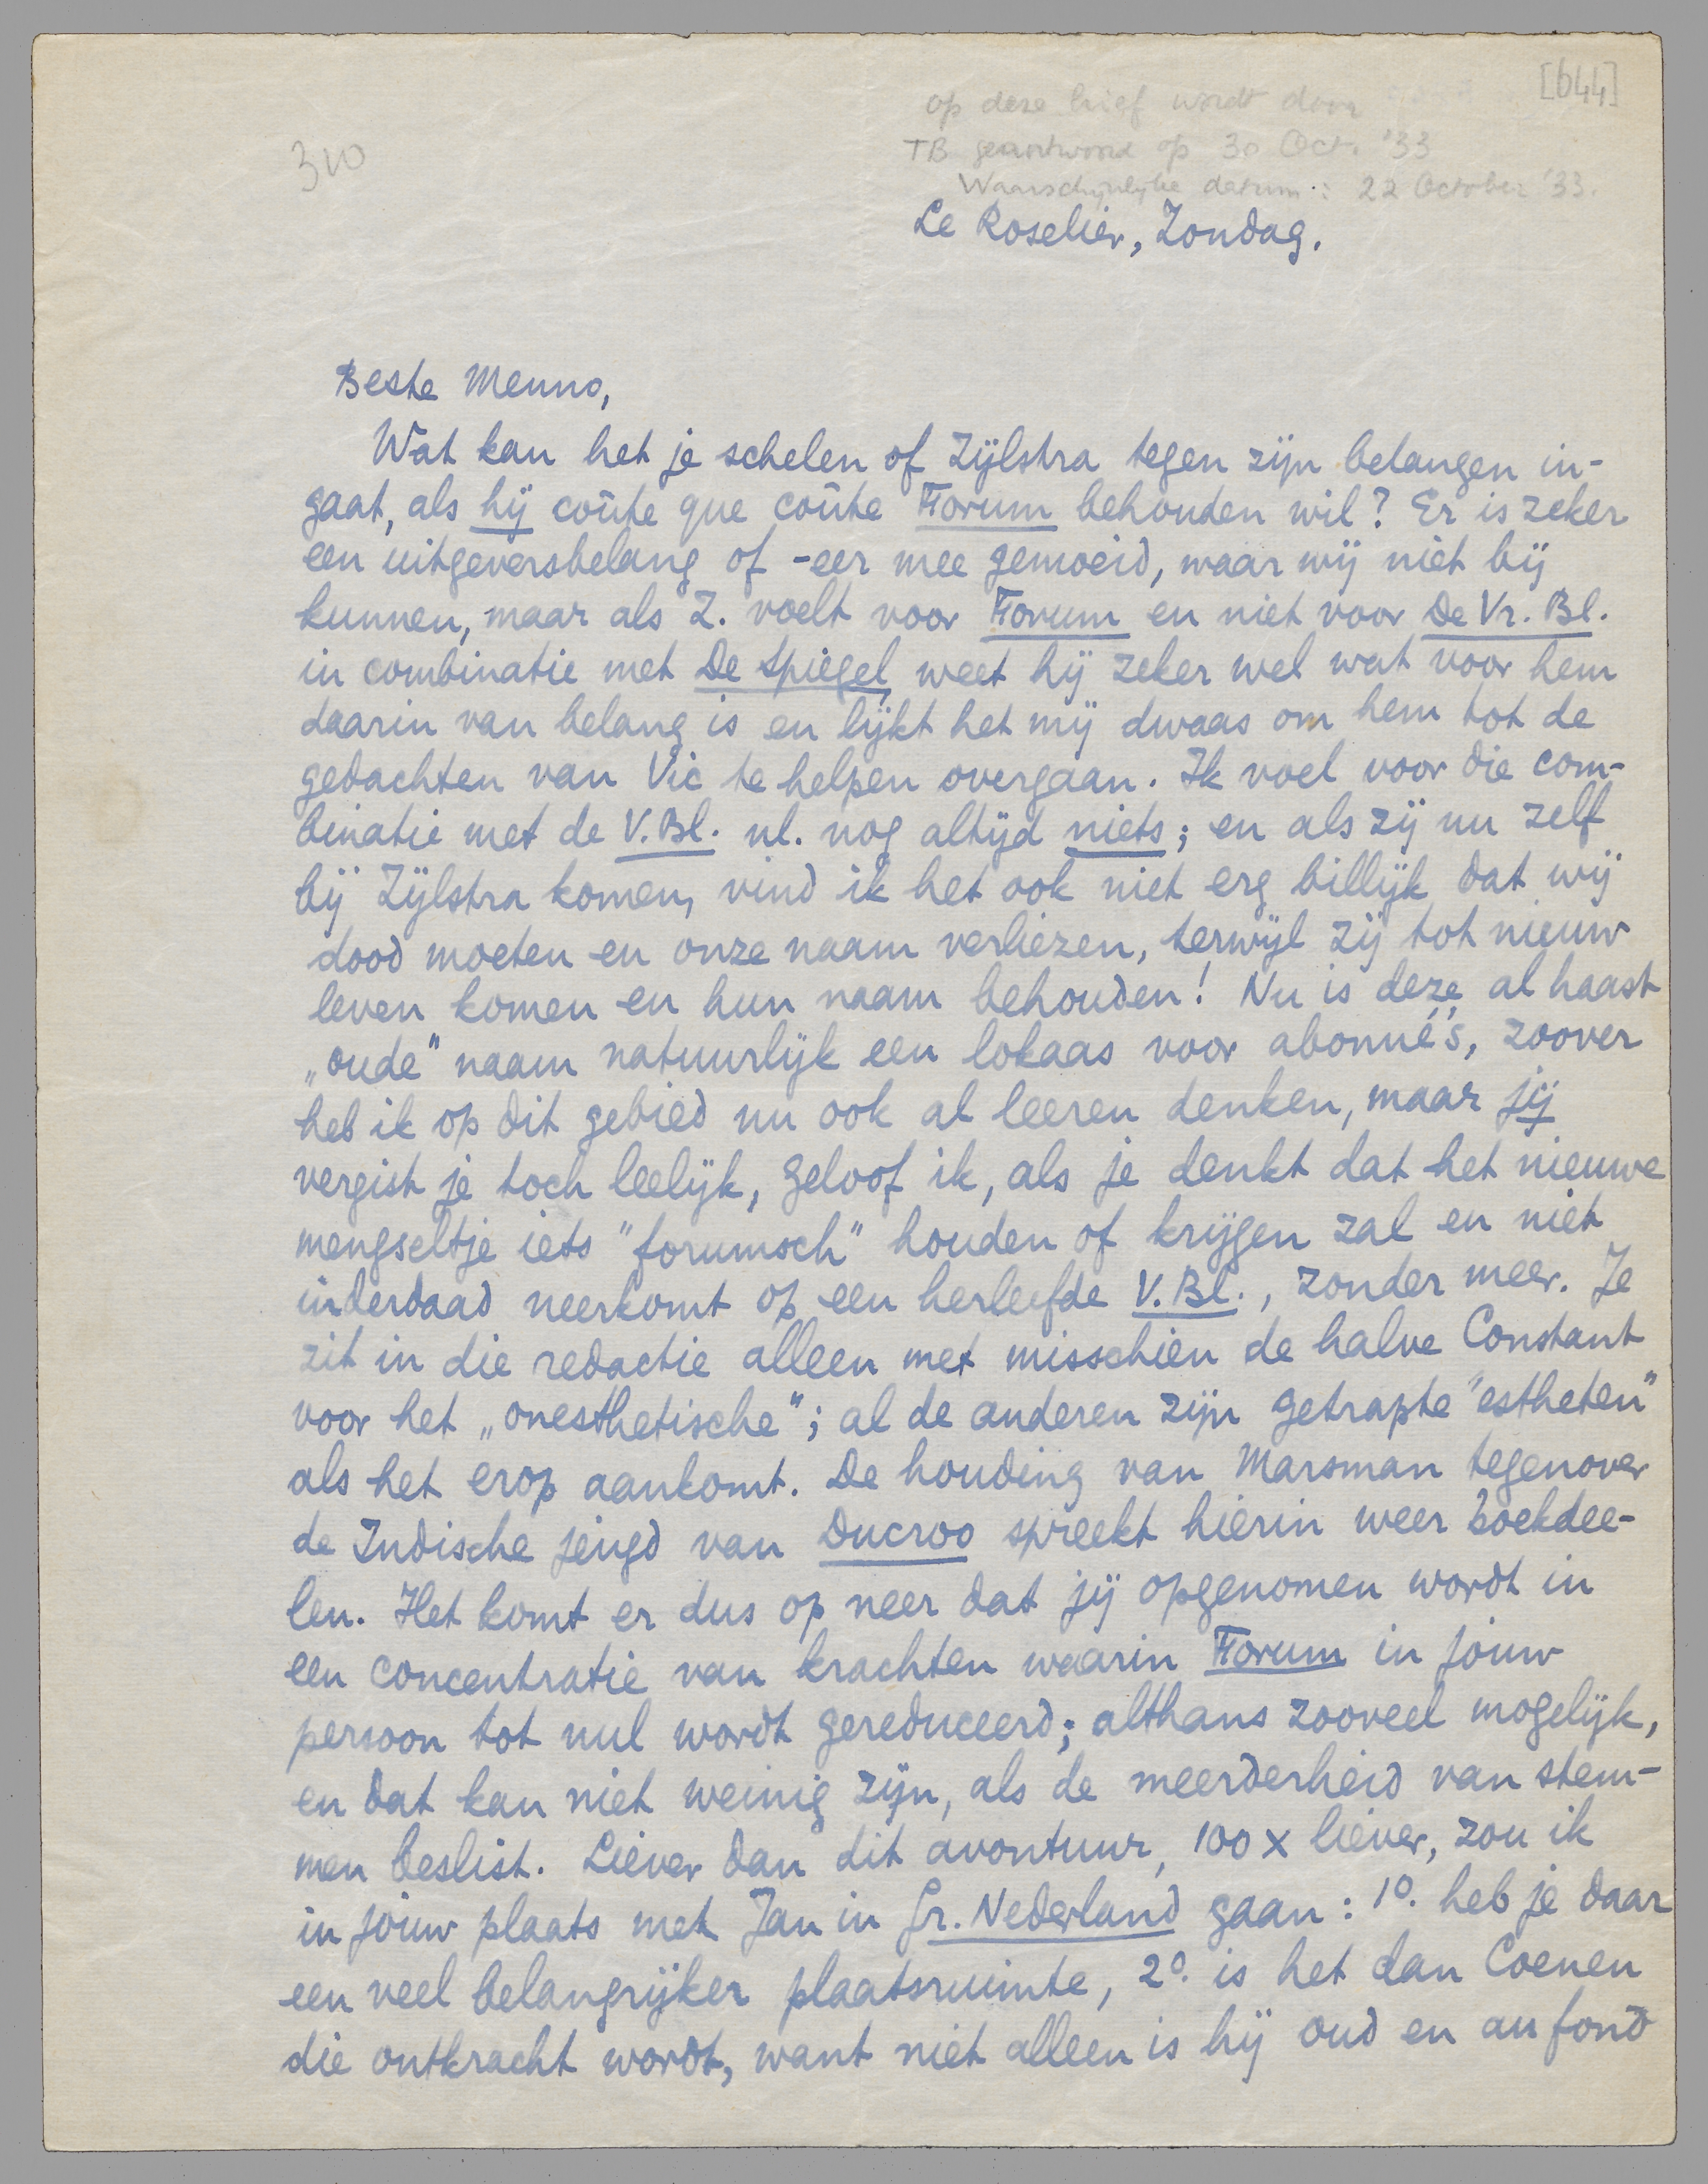 [644]
op deze brief wordt door
TB geantwoord op 30 Oct. '33
Waarschijnlijke datum: 22 October '33.
310
Le Roselier, Zondag.
Beste Menno,
Wat kan het je schelen of Zijlstra tegen zijn belangen in-
gaat, als hij coûte que coûte Forum behouden wil? Er is zeker
een uitgeversbelang of -eer mee gemoeid, waar wij niet bij
kunnen, maar als Z. voelt voor Forum en niet voor De Vr. Bl.
in combinatie met De Spiegel, weet hij zeker wel wat voor hem
daarin van belang is en lijkt het mij dwaas om hem tot de
gedachten van Vic te helpen overgaan. Ik voel voor die com-
binatie met de V. Bl. nl. nog altijd niets; en als zij nu zelf
bij Zijlstra komen, vind ik het ook niet erg billijk dat wij
dood moeten en onze naam verliezen, terwijl zij tot nieuw
leven komen en hun naam behouden! Nu is deze al haast
„oude" naam natuurlijk een lokaas voor abonné's, zoover
heb ik op dit gebied nu ook al leeren denken, maar jij
vergist je toch leelijk, geloof ik, als je denkt dat het nieuwe
mengseltje iets "forumsch" houden of krijgen zal en niet
inderdaad neerkomt op een herleefde V. Bl., zonder meer. Je
zit in die redactie alleen met misschien de halve Constant
voor het „onesthetische"; al de anderen zijn getrapte "estheten"
als het erop aankomt. De houding van Marsman tegenover
de Indische jeugd van Ducroo spreekt hierin weer boekdee-
len. Het komt er dus op neer dat jij opgenomen wordt in
een concentratie van krachten waarin Forum in jouw
persoon tot nul wordt gereduceerd; althans zooveel mogelijk,
en dat kan niet weinig zijn, als de meerderheid van stem-
men beslist. Liever dan dit avontuur, 100 x liever, zou ik
in jouw plaats met Jan in Gr. Nederland gaan: 1º. heb je daar
een veel belangrijker plaatsruimte, 2º. is het dan Coenen
die ontkracht wordt, want niet alleen is hij oud en au fond